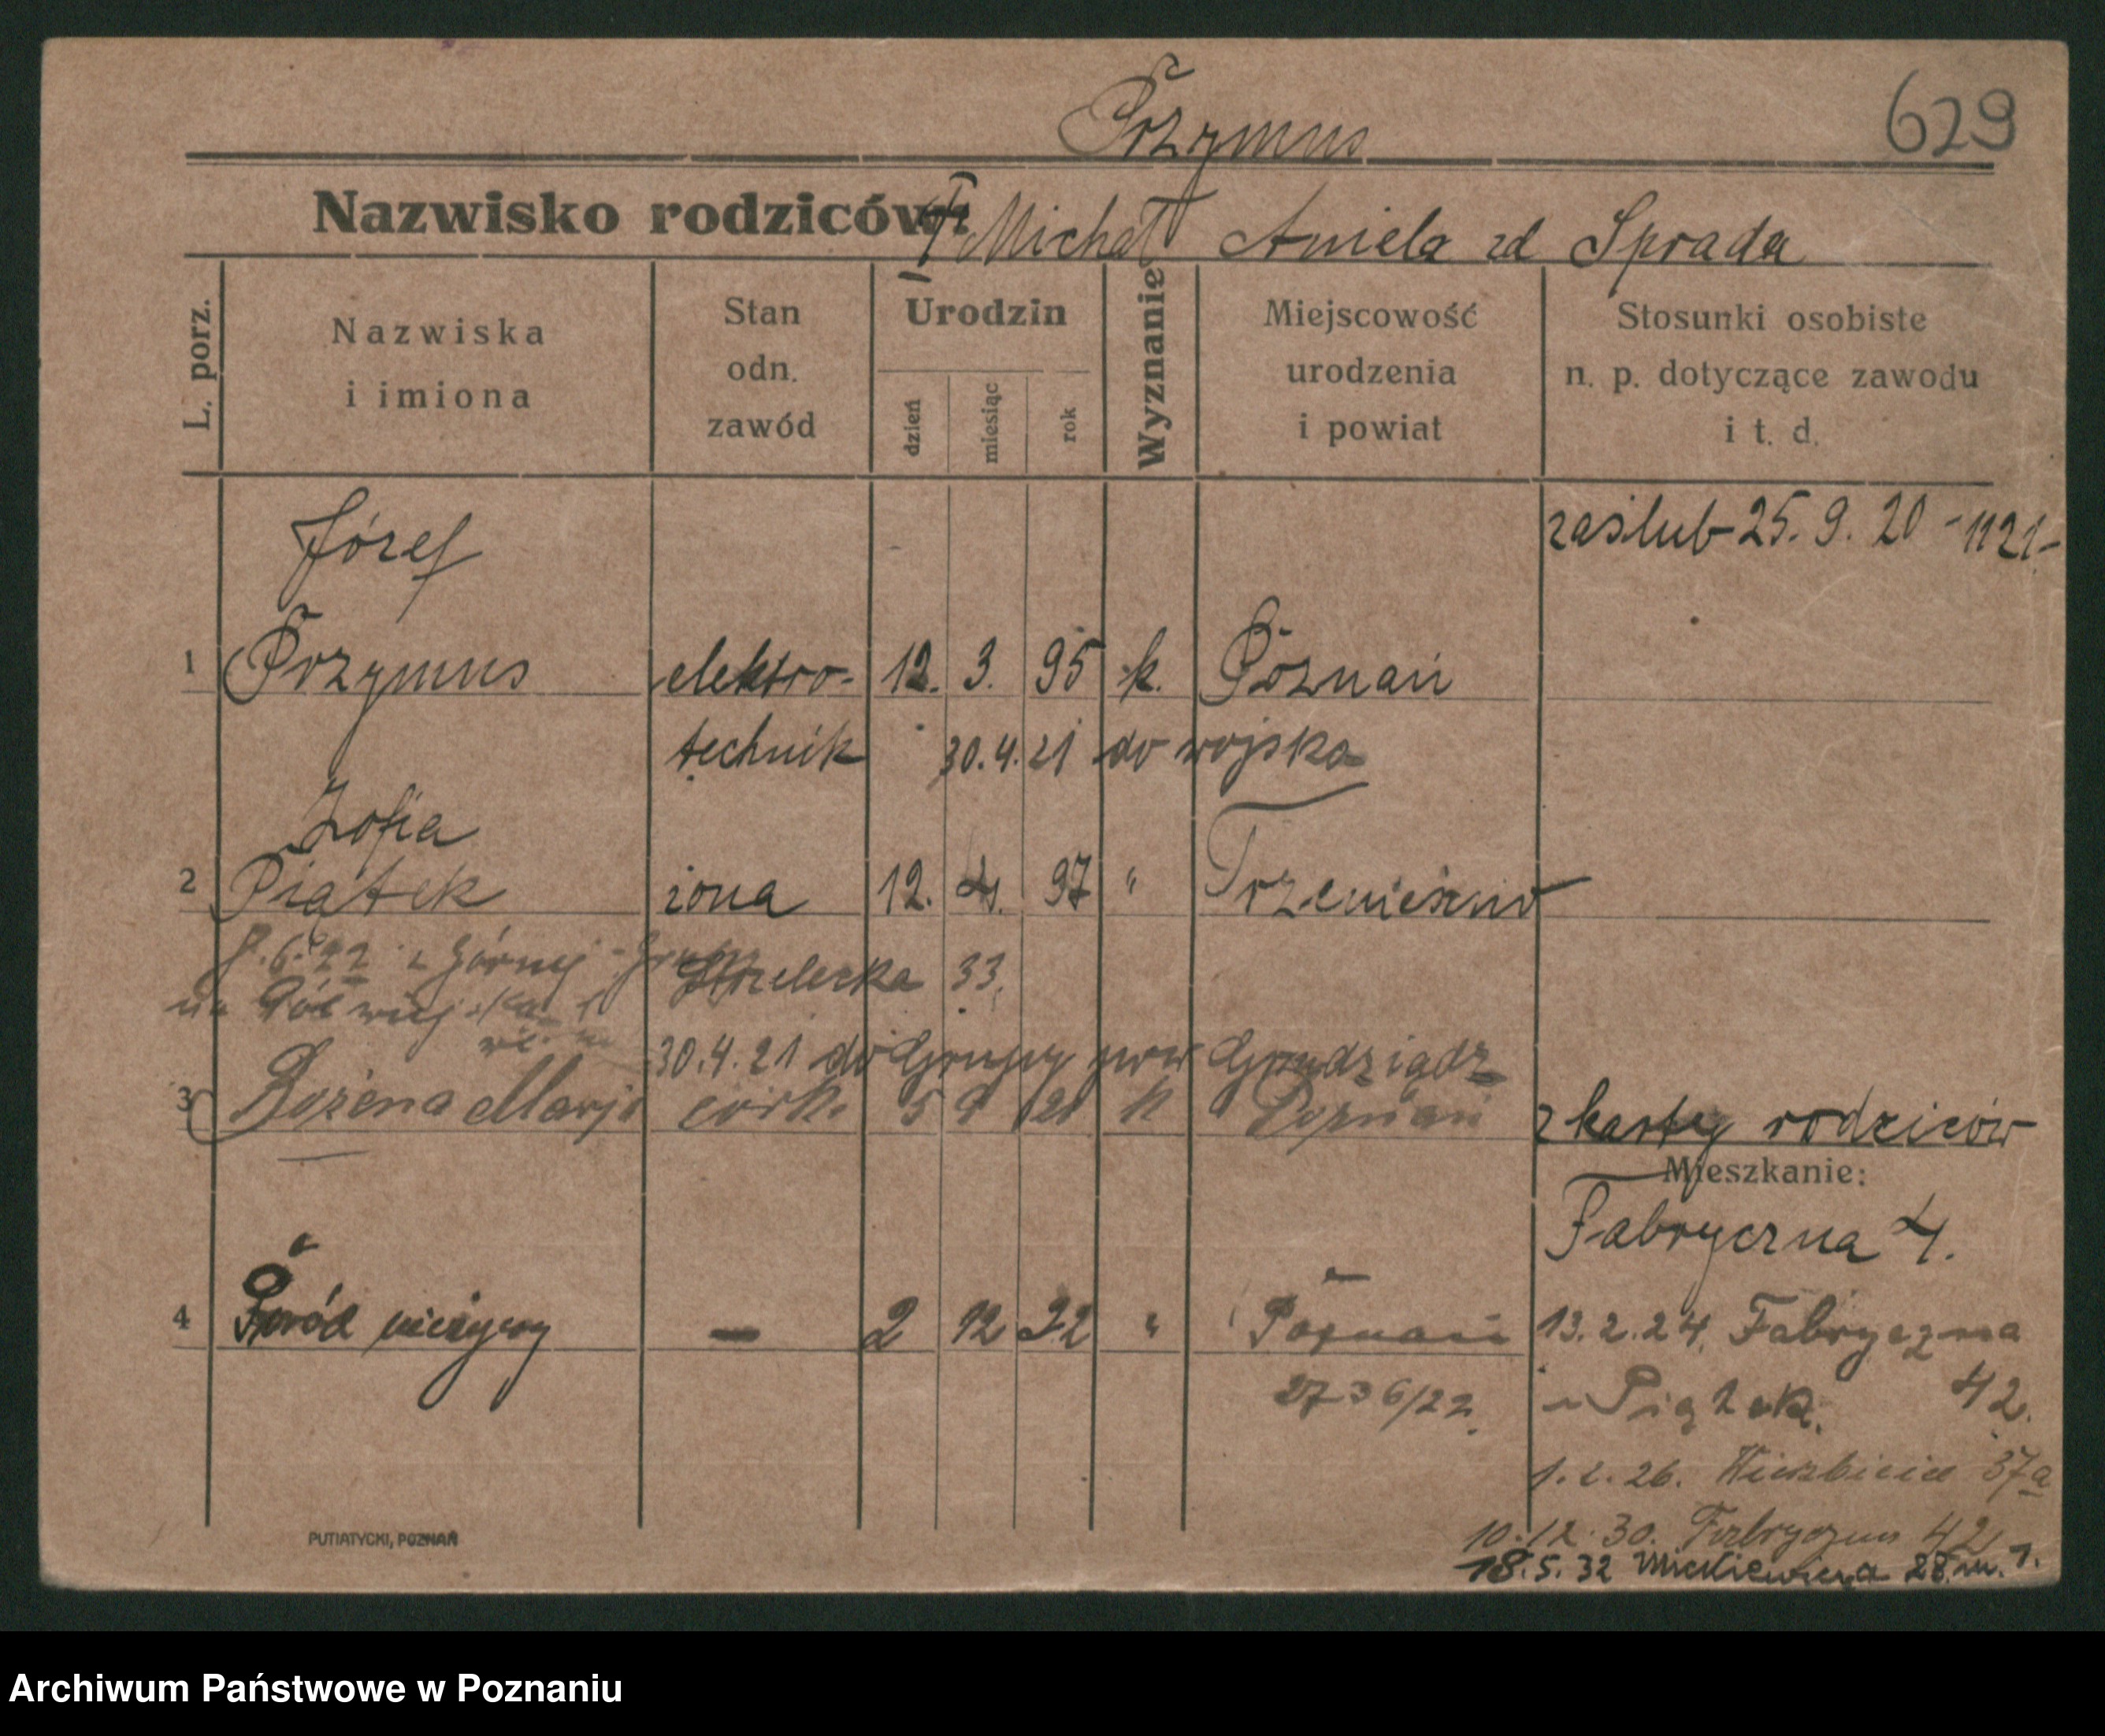 Przymus
629
Nazwisko rodziców: Michał Aniela zd Sprada
L. porz.
Nazwiska i imiona
Stan odn. zawód
Urodzin
dzień
miesiąc
rok
Wyznanie
Miejscowość urodzenia i powiat
Stosunki osobiste n. p. dotyczące zawodu i t. d.
Józef
zaślub 25. 9. 20 - 1121 -
1 Przymus elektro- 12. 3. 95 k. Poznań
technik 30.4.21 do wojska
Zofia
2 Piątek żona 12. 4. 97 " Trzemeszno
6. 22 z Górnej
Strzelecka 33.
na Półwiejską
30.4.21 do Grupy pow Grudziądz
3 Bożena Marja córk. 5 9 21 k Poznań z karty rodziców
Mieszkanie:
Fabryczna 4.
4 Poród nieżywy — 2 12 22 " Poznań 13.2.24. Fabryczna
2736/22. u Piątek. 42.
1.2.26. Wierzbięcice 37a
10.12.30. Fabryczna 42
18.5.32 Mickiewicza 28 m. 1.
PUTIATYCKI, POZNAŃ
Archiwum Państwowe w Poznaniu